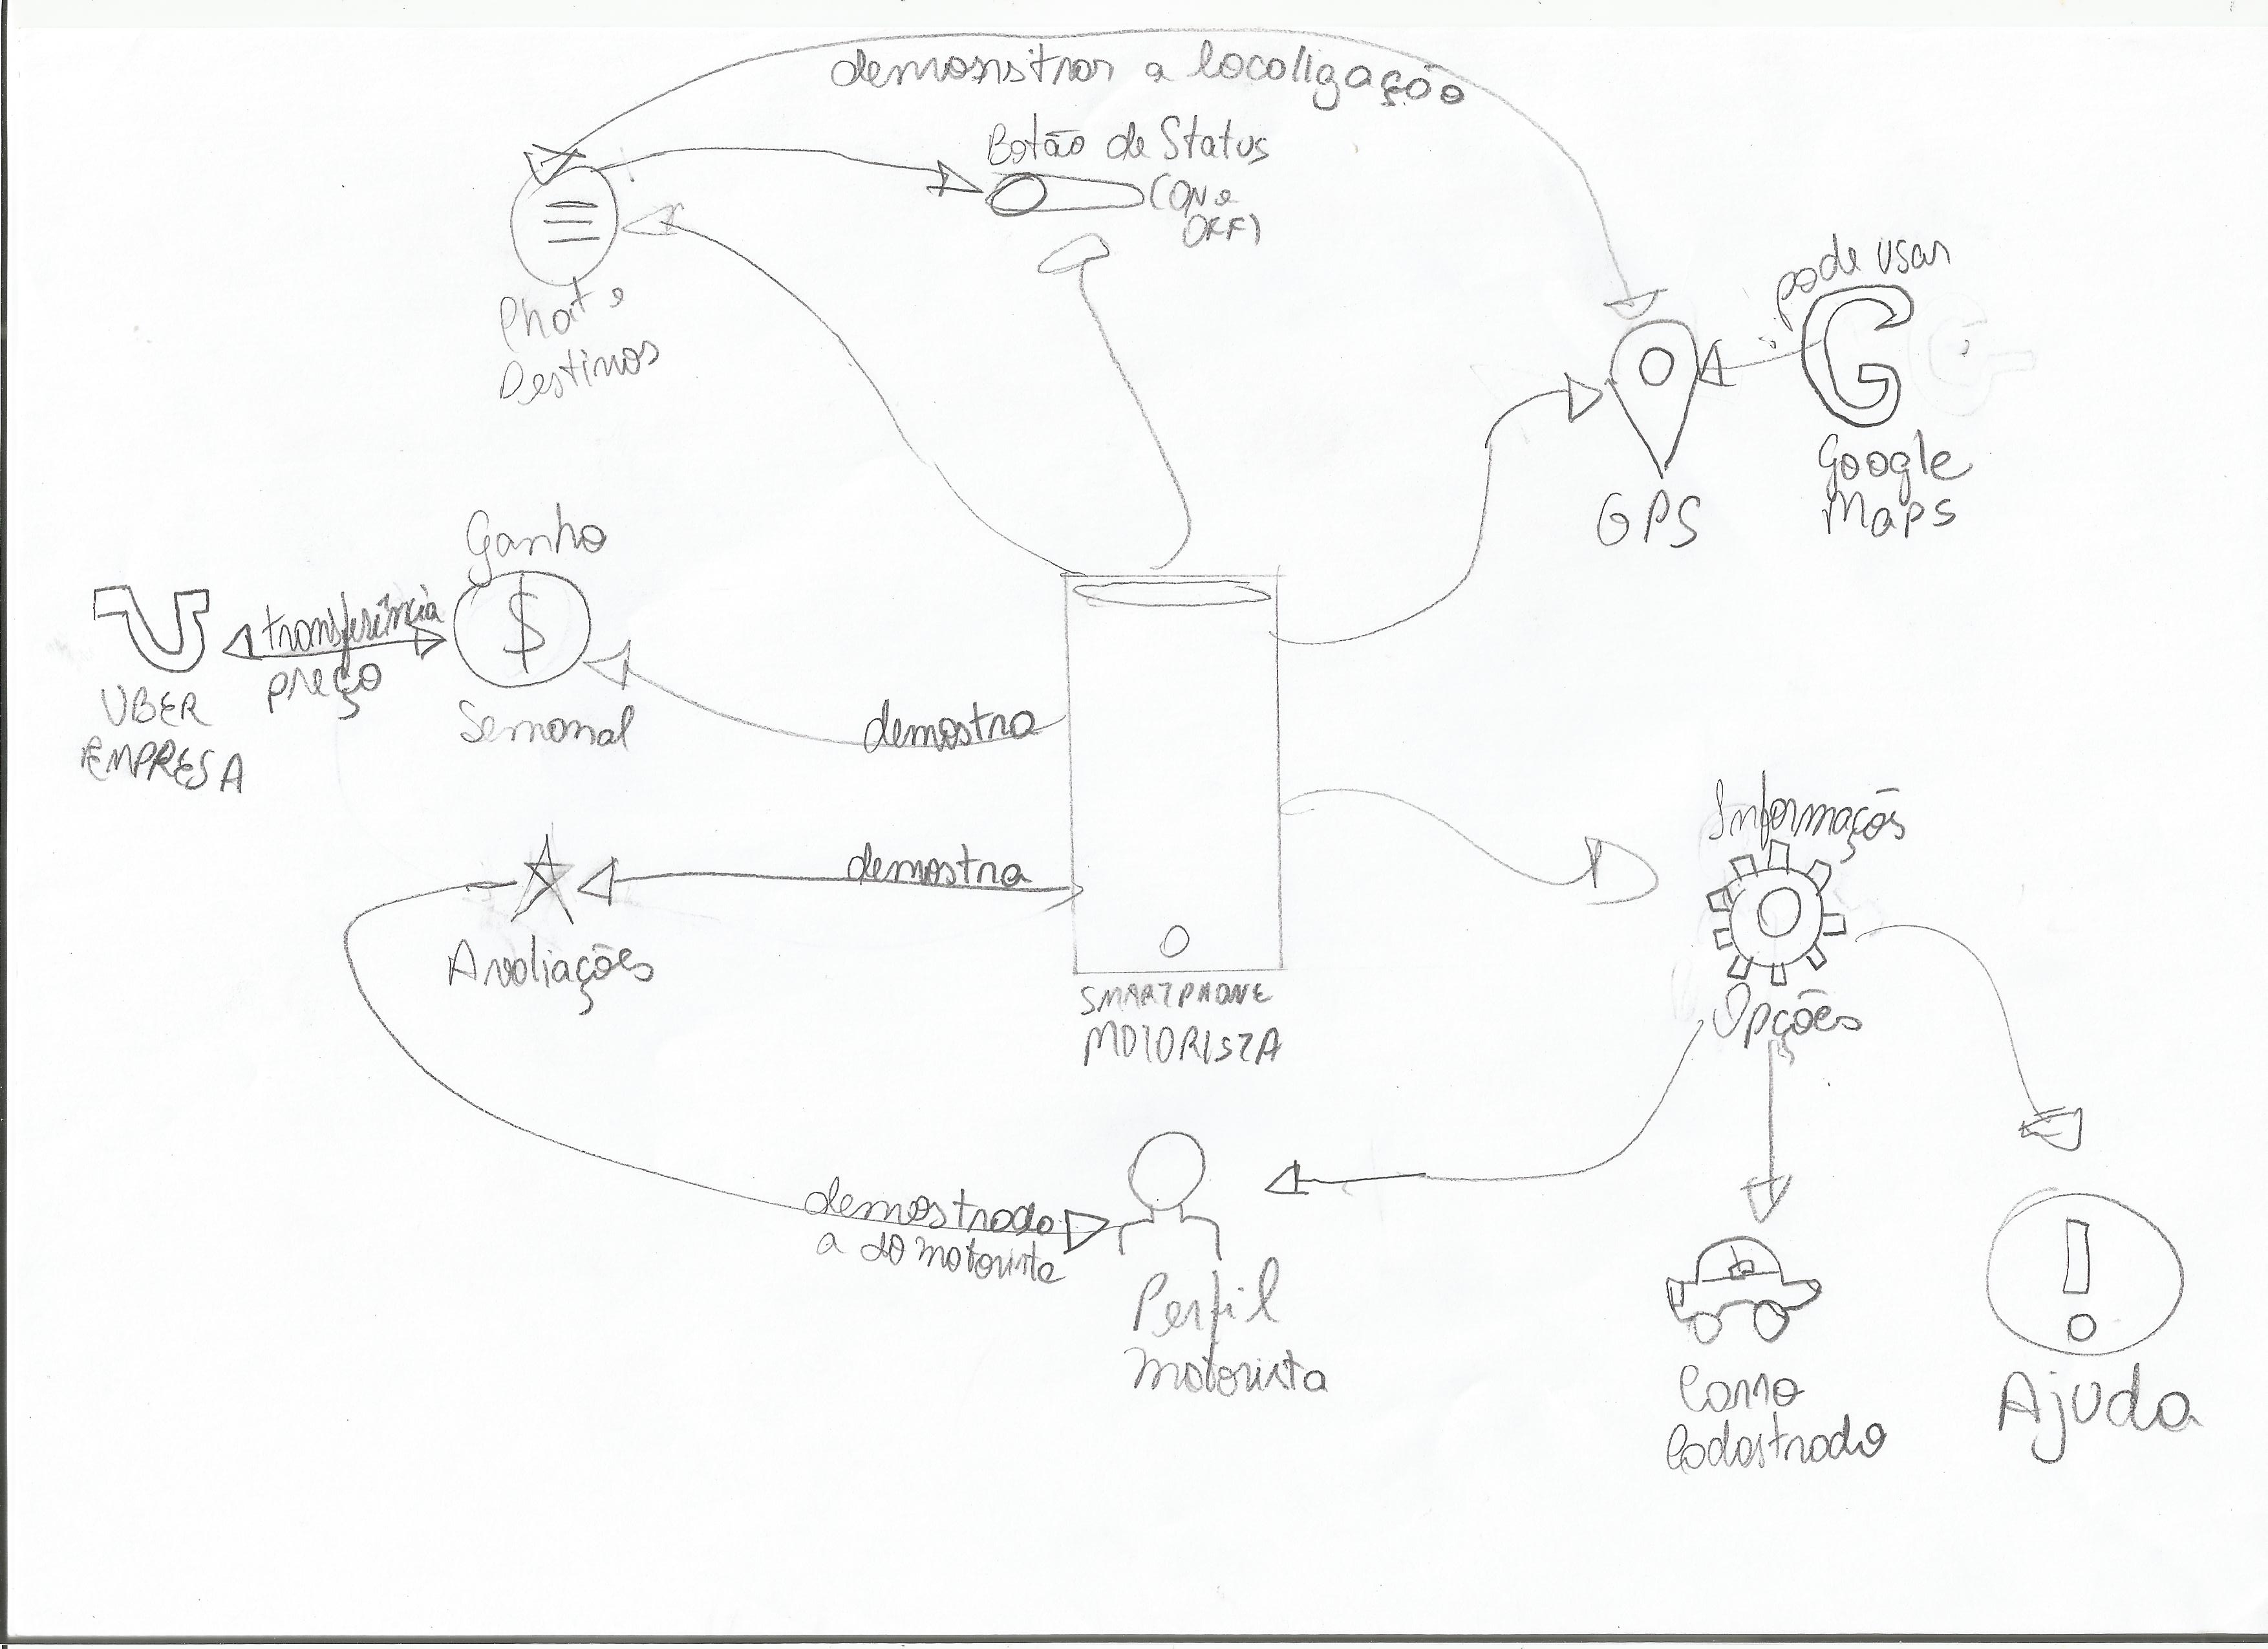 demonstrar a localização
Botão de Status
(ON e
OFF)
pode usar
Phat e
Destinos
Google
Maps
GPS
Ganho
$
transferência
preço
UBER
EMPRESA
Semanal
demostra
Informaçõs
demostra
Avaliações
SMARTPHONE
MOTORISTA
Opções
demostrado
a do motorista
Perfil
motorista
!
Carro
Cadastrado
Ajuda